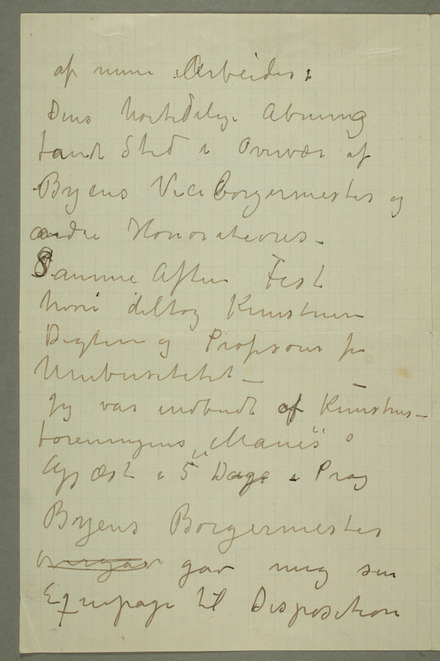 af mine Arbeider:
Dens høitidelige Åbning
fandt Sted i Overvær af
Byens Viceborgermester og
andre Honoratiores –
Samme Aften Fest
hvori deltog Kunstnere
Digtere og Profesorer fra
Universitetet –
Jeg var indbudt af Kunstner–
foreningens „Manes"
Gjæst i 5 Dage i Prag
Byens Borgermester
gav mig sin
Equipage til Disposition